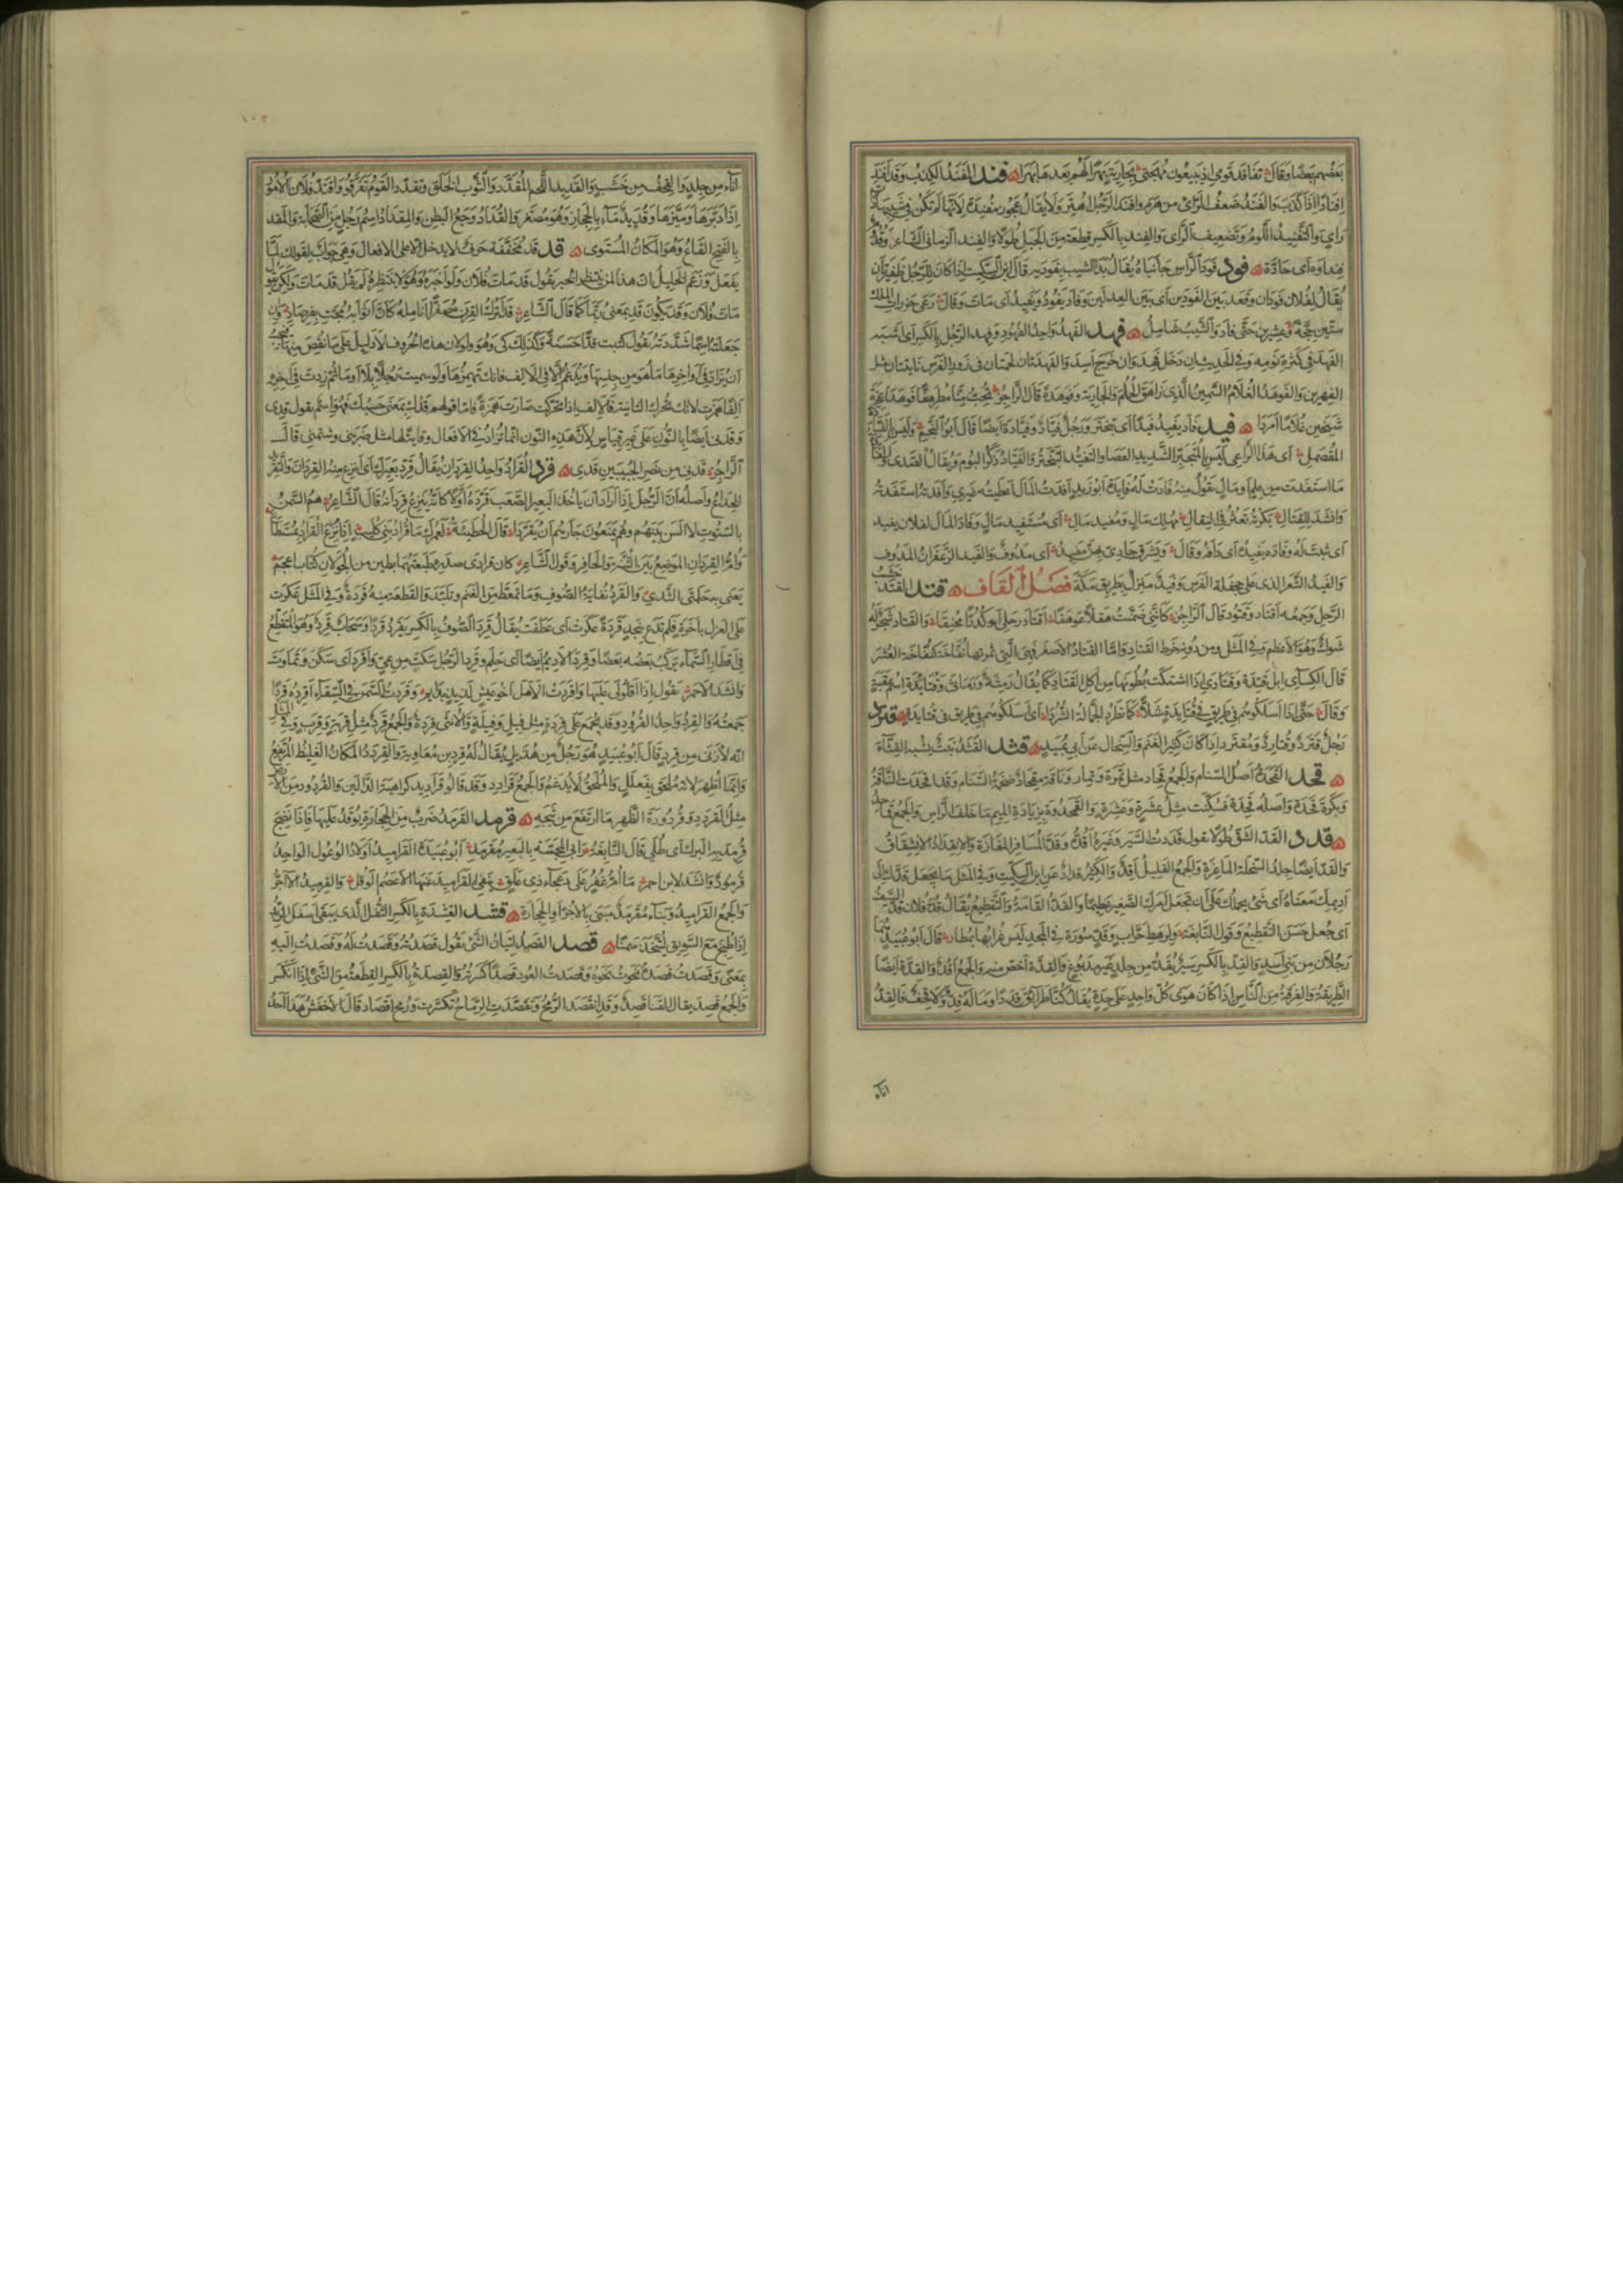 بعضهم بعضا وقال تفاقد قومي اذ يبيعون مهجتي بجارية بهرا لهم بعدها بهرا فند الفند الكذب وقد افند
افنادا اذا كذب والفند ضعف الراى من هرم وافند الرجل اهتر ولا يقال عجوز مفندة لانها لم تكن في شبيبتها ذات
راى والتفنيد اللوم وتضعيف الراى والفند بالكسر قطعة من الجبل طولا والفند الزماني الشاعر وقدوم
فنداوة اى حادة فود فودا الراس جانباه يقال بدا الشيب بفوديه قال ابن السكيت اذا كان للرجل ظفيرتان
يقال لفلان فودان وقعد بين الفودين اى بين العدلين وفاد يفود ويفيد اى مات وقال رعى خرزات الملك
ستين حجة وعشرين حتى فاد والشيب شامل فهد الفهد واحد الفهود وفهد الرجل بالكسر اى اشبه
الفهد في كثرة نومه وفي الحديث ان دخل فهد وان خرج اسد والفهدتان لحمتان في زور الفرس ناتئتان مثل
الفهرين والفوهد الغلام السمين الذى راهق الحلم والجارية فوهدة قال الراجز تحب منا مطرهفا فوهدا عجزة
شيخين غلاما امردا فيد فاد يفيد فيدا اى تبختر ورجل فياد وفيادة ايضا قال ابو النجم وليس بالفيادة
المقصمل اى هذا الراعى ليس بالمتجبر الشديد العصا والتفيد التبختر والفياد ذكر البوم ويقال الصدى والفائدة
ما استفدت من علم او مال تقول منه فادت له فايدة ابو زيد افدت المال اعطيته غيرى وافدته استفدته
وانشد للقتال بكرته تعثر في النقال مهلك مال ومفيد مال اى مستفيد مال وفاد المال لفلان يفيد
اى ثبت له وفاده يفيده اى دافه وقال ويشرق جادى بهن مفيد اى مدوف والفيد الزعفران المدوف
والفيد الشعر الذى على جحفلة الفرس وفيد منزل بطريق مكة فصل القاف قتد القتد خشب
الرحل وجمعه اقتاد وقتود قال الراجز كاننى ضمنت هقلا عوهقا اقتاد رحلى او كدرا محنقا والقتاد شجر له
شوك وهو الاعظم وفي المثل ومن دونه خرط القتاد واما القتاد الاصغر فهى التى ثمرتها نفاخة كنفاخة العشر
قال الكسآى ابل قتدة وقتادى اذا اشتكت بطونها من اكل القتاد كما يقال رمثة ورماثى وقتايدة اسم عقبة
وقال حتى اذا اسلكوهم في قتايدة شلا كما تطرد الجمالة الشردا اى اسلكوهم في طريق في قتايدة قترد
رجل قترد وقتارد ومقترد اذا كان كثير الغنم والسخال عن ابي عبيد قثد القثد نبت يشبه القثاء
قحد القحدة اصل السنام والجمع قحاد مثل ثمرة وثمار وناقة مقحاد ضخمة السنام وقد اقحدت الناقة
وبكرة قحدة واصله قحدة فسكنت مثل عشرة وعشرة والقمحدوة بزيادة الميم ما خلف الراس والجمع قماحد
قدد القد الشق طولا تقول قددت السير وغيره اقده وقد المسافر المفازة والانقداد الانشقاق
والقد ايضا جلد السخلة الماعزة والجمع القليل اقد والكثير قداد عن ابن السكيت وفي المثل ما يجعل قدك الى
اديمك معناه اى شىء يحملك على ان تجعل امرك الصغير عظيما والقد القامة والتقطيع يقال قد فلان قد السيف
اى جعل حسن التقطيع وقول النابغة ولرهط حراب وقد سورة في المجد ليس غرابها بمطار قال ابو عبيد هما
رجلان من بنى اسد والقد بالكسر سير يقد من جلد غير مدبوغ والقدة اخص منه والجمع اقد والقدة ايضا
الطريقة والفرقة من الناس اذا كان هوى كل واحد على حدة يقال كنا طرائق قددا وماله قد ولا قحف فالقد
اناء
١٠٢
اناء من جلد والقحف من خشب والقديد اللحم المقدد والثوب الخلق وتقدد القوم تفرقوا واقتد فلان الامور
اذا دبرها وميزها وقديد ماء بالحجاز وهو مصغر والقداد وجع البطن والمقداد اسم رجل من الصحابة والمقد
بالفتح القاع وهو المكان المستوى قد قد مخففة حرف لا يدخل الا على الافعال وهى جواب لقولك لما
يفعل وزعم الخليل ان هذا لمن ينتظر الخبر يقول قد مات فلان ولو اخبره وهو لا ينتظره لم يقل قد مات ولكن يقول
مات فلان وقد يكون قد بمعنى ربما كما قال الشاعر قد اترك القرن مصفرا انامله كان اثوابه مجت بفرصاد وان
جعلته اسما شددته تقول كتبت قدا حسنة وكذلك كى وهو ولو لان هذه الحروف لا دليل على ما نقص منها فيجب
ان يزاد في اواخرها ما هو من جنسها ويدغم الا في الالف فانك تهمزها ولو سميت رجلا بلا او ما ثم زدت في اخره
الفا همزت لانك تحرك الثانية والالف اذا تحركت صارت همزة فاما قولهم قدك بمعنى حسبك فهو اسم تقول قدى
وقدنى ايضا بالنون على غير قياس لان هذه النون انما تزاد في الافعال وقاية لها مثل ضربنى وشتمنى قال
الراجز قدنى من نصر الخبيبين قدى قرد القراد واحد القردان يقال قرد بعيرك اى انزع منه القردان والتقريد
الخداع واصله ان الرجل اذا اراد ان ياخذ البعير الصعب قرده اولا كانه ينزع قردانه قال الشاعر هم السمن
بالسنوت لا الس بينهم وهم يمنعون جارهم ان يقردا وقال الحطيئة لعمرك ما قراد بنى كليب اذا نزع القراد بمستطاع
وام القردان الموضع بين الثنة والحافر وقول الشاعر كان قرادى صدره طبعتهما بطين من الجولان كتاب اعجم
يعنى به حلمتى الثدى والقرد نفاية الصوف وما تمعط من الغنم وتلبد والقطعة منه قردة وفي المثل عكرت
على الغزل باخرة فلم تدع بنجد قردة عكرت اى عطفت يقال قرد الصوف بالكسر يقرد قردا وسحاب قرد وهو المتقطع
في اقطار السماء يركب بعضه بعضا وقرد الاديم ايضا اى حلم وقرد الرجل سكت من عى واقرد اى سكن وتماوت
وانشد الاحمر تقول اذا اقلولى عليها واقردت الا هل اخو عيش لذيذ بدايم وقردت السمن في السقاء اقرده قردا
جمعته والقرد واحد القرود وقد يجمع على قردة مثل فيل وفيلة والانثى قردة والجمع قرد مثل قربة وقرب وفي المثل
انه لازنى من قرد قال ابو عبيد هو رجل من هذيل يقال له قرد بن معاوية والقردد المكان الغليظ المرتفع
وانما اظهر لانه ملحق بفعلل والملحق لا يدغم والجمع قرادد وقد قالوا قراديد كراهية الدالين والقردود من الارض
مثل القردد وقردودة الظهر ما ارتفع من ثبجه قرمد القرمد ضرب من الحجارة يوقد عليها فاذا نضج
قرمد به البرك اى طلى قال النابغة رابى المجسة بالعبير مقرمد ابو عبيدة القراميد اولاد الوعول الواحد
قرمود وانشد لابن احمر ما ام غفر على دعجاء ذى علق ينفى القراميد عنها الاعصم الوقل والقرميد الاجر
والجمع القراميد وبناء مقرمد مبنى بالاجر او الحجارة قشد القشدة بالكسر الثفل الذى يبقى اسفل الزبد
اذا طبخ مع السويق ليتخذ سمنا قصد القصد اتيان الشى تقول قصدته وقصدت له وقصدت اليه
بمعنى وقصدت قصده نحوت نحوه وقصدت العود قصدا كسرته والقصدة بالكسر القطعة من الشى اذا انكسر
والجمع قصد يقال القنا قصد وقد انقصد الرمح وتقصدت الرماح تكسرت ورمح اقصاد قال الاخفش هذا احد